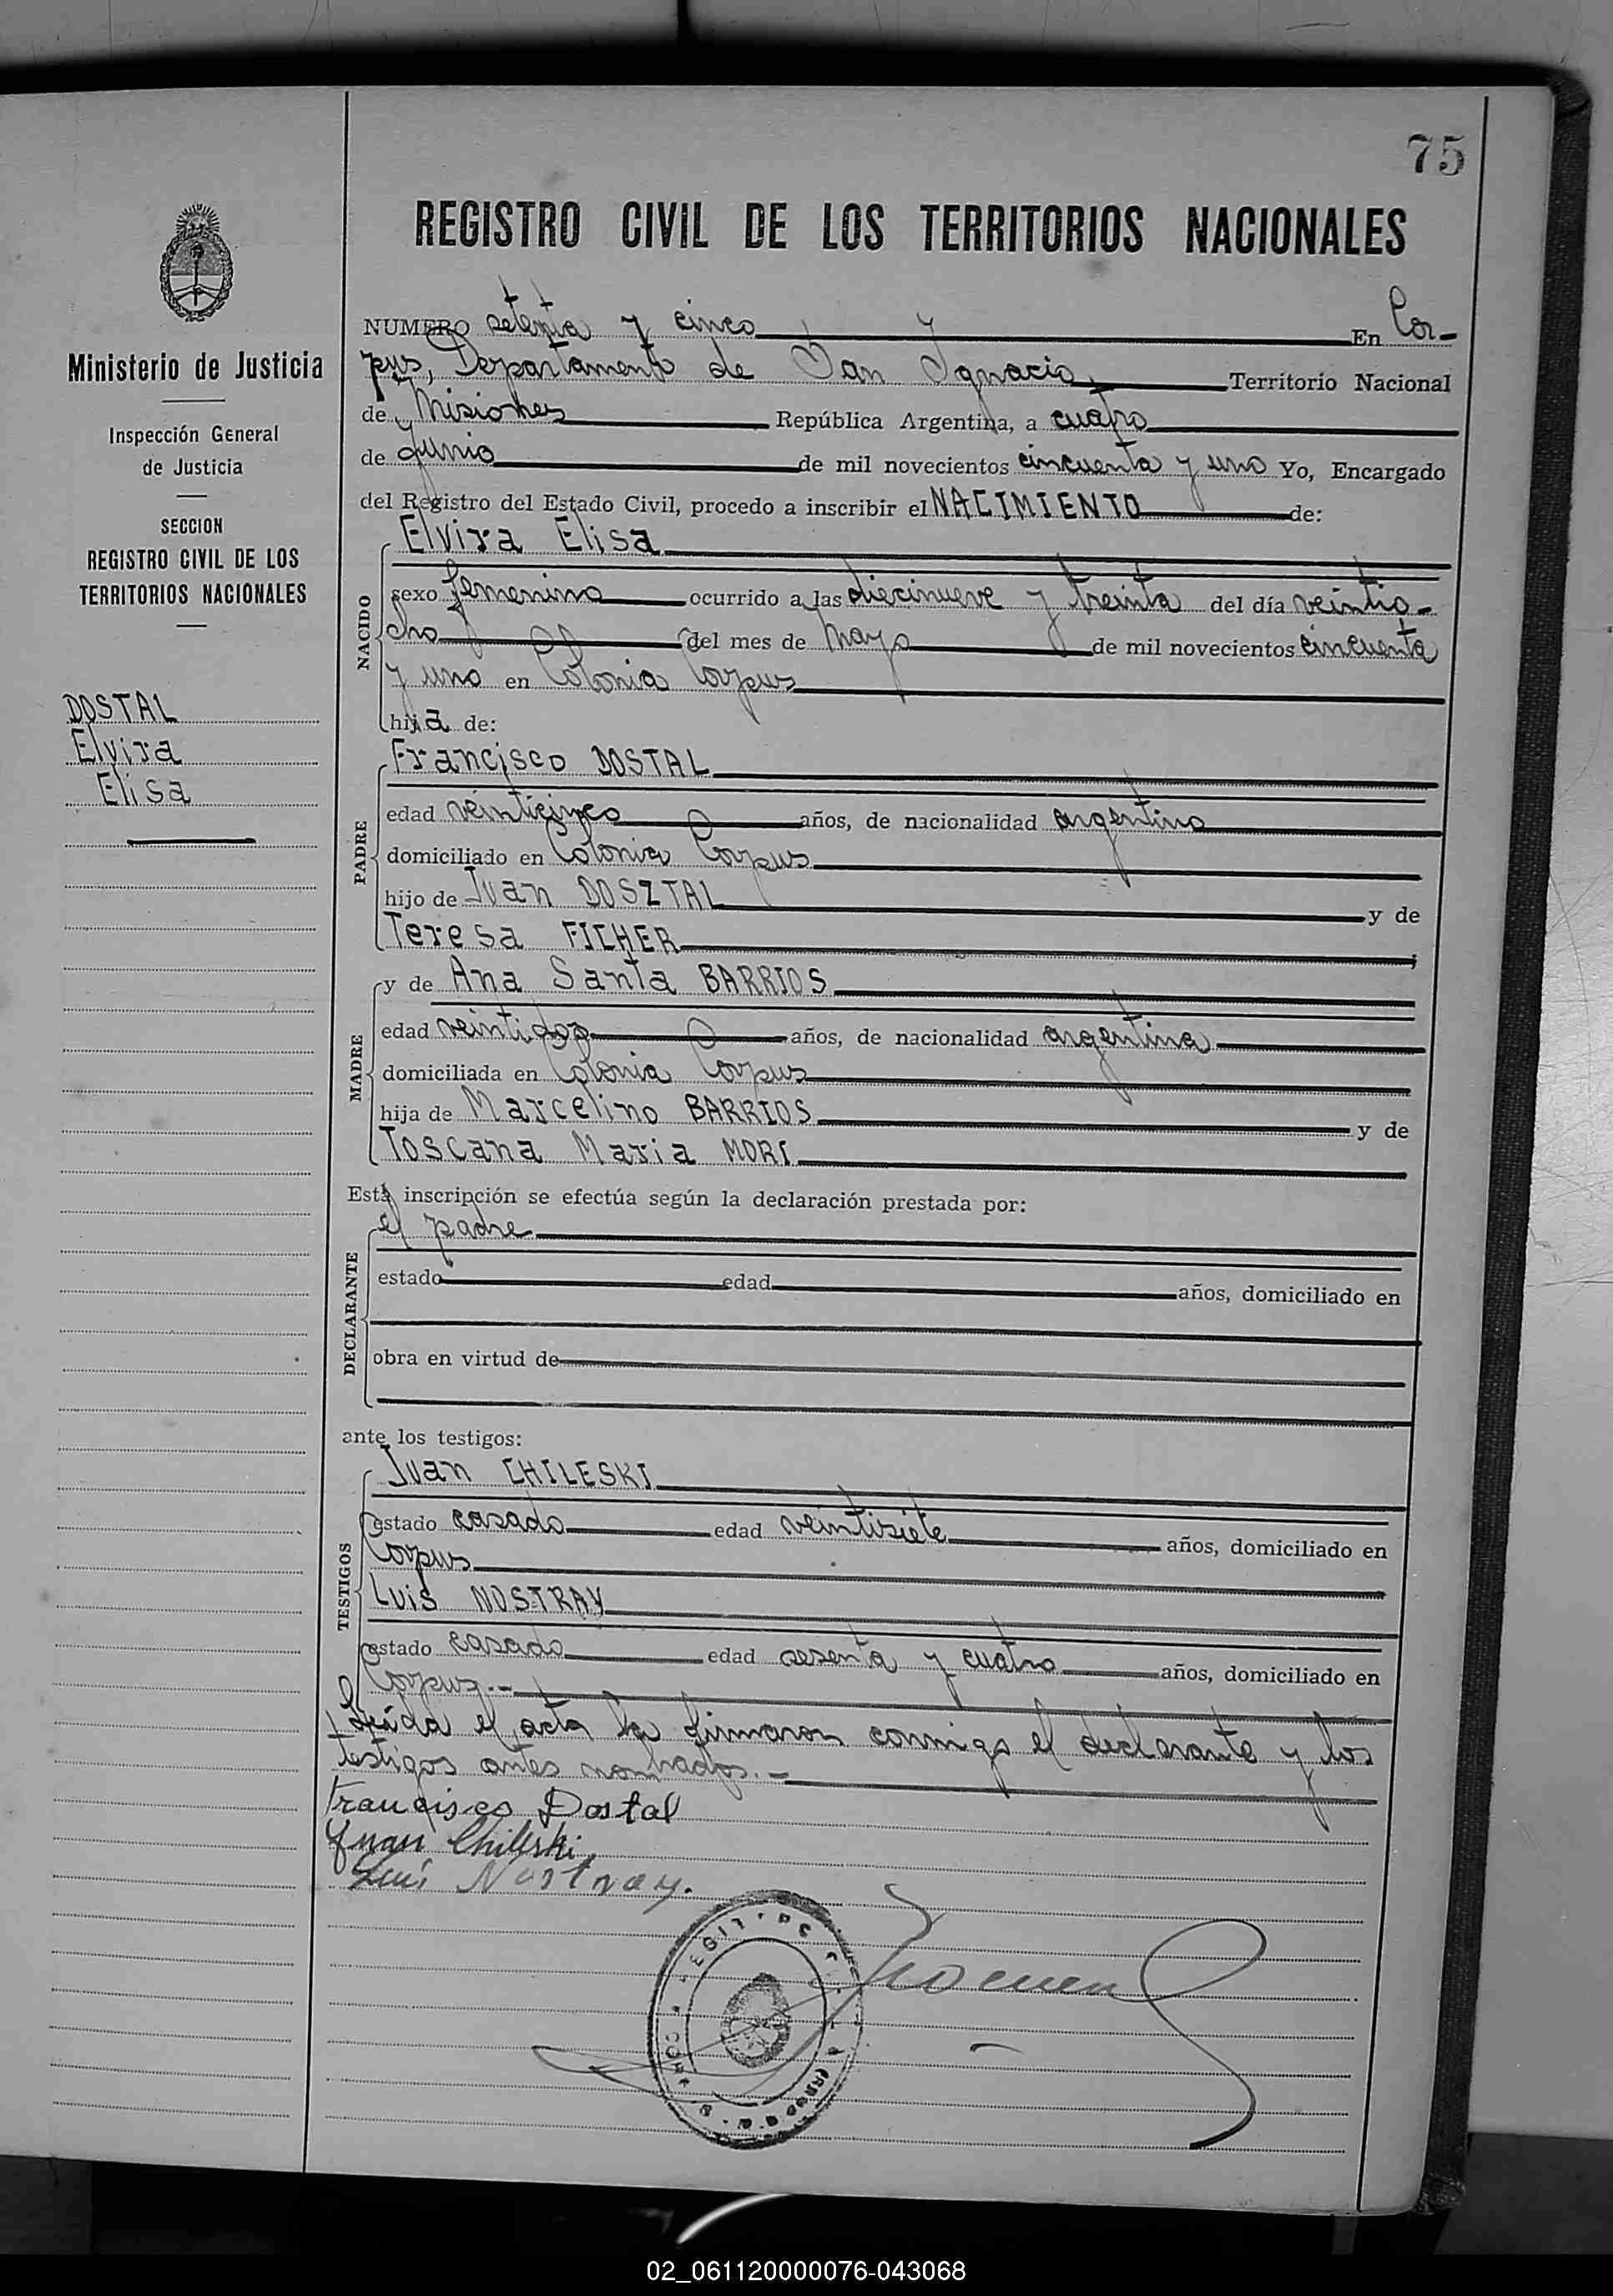 75
REGISTRO CIVIL DE LOS TERRITORIOS NACIONALES
Ministerio de Justicia
Inspección General
de Justicia
SECCION
REGISTRO CIVIL DE LOS
TERRITORIOS NACIONALES
DOSTAL
Elvira
Elisa
NUMERO setenta y cinco En Cor-
pus, Departamento de San Ignacio, Territorio Nacional
de Misiones República Argentina, a cuatro
de junio de mil novecientos cincuenta y uno Yo, Encargado
del Registro del Estado Civil, procedo a inscribir el NACIMIENTO de:
NACIDO
Elvira Elisa
sexo femenino ocurrido a las diecinueve y treinta del día veintio-
cho del mes de mayo de mil novecientos cincuenta
y uno en Colonia Corpus
hija de:
PADRE
Francisco DOSTAL
edad veinticinco años, de nacionalidad argentino
domiciliado en Colonia Corpus
hijo de Juan DOSZTAL y de
Teresa FICHER
MADRE
y de Ana Santa BARRIOS
edad veintidos años, de nacionalidad argentina
domiciliada en Colonia Corpus
hija de Marcelino BARRIOS y de
Toscana Maria MORI
Esta inscripción se efectúa según la declaración prestada por:
DECLARANTE
el padre
estado edad años, domiciliado en
obra en virtud de
ante los testigos:
TESTIGOS
Juan CHILESKI
estado casado edad veintisiete años, domiciliado en
Corpus
Luis NOSTRAY
estado casado edad sesenta y cuatro años, domiciliado en
Corpus.-
Leída el acta la firmaron conmigo el declarante y los
testigos antes nombrados.-
Francisco Dostal
Juan Chileski
Luis Nostray.
02_061120000076-043068